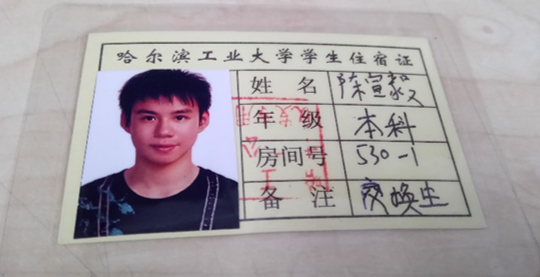 哈尔滨工业大学学生住宿证
姓 名 陈宣毅
年 级 本科
房间号 530-1
备 注 交换生